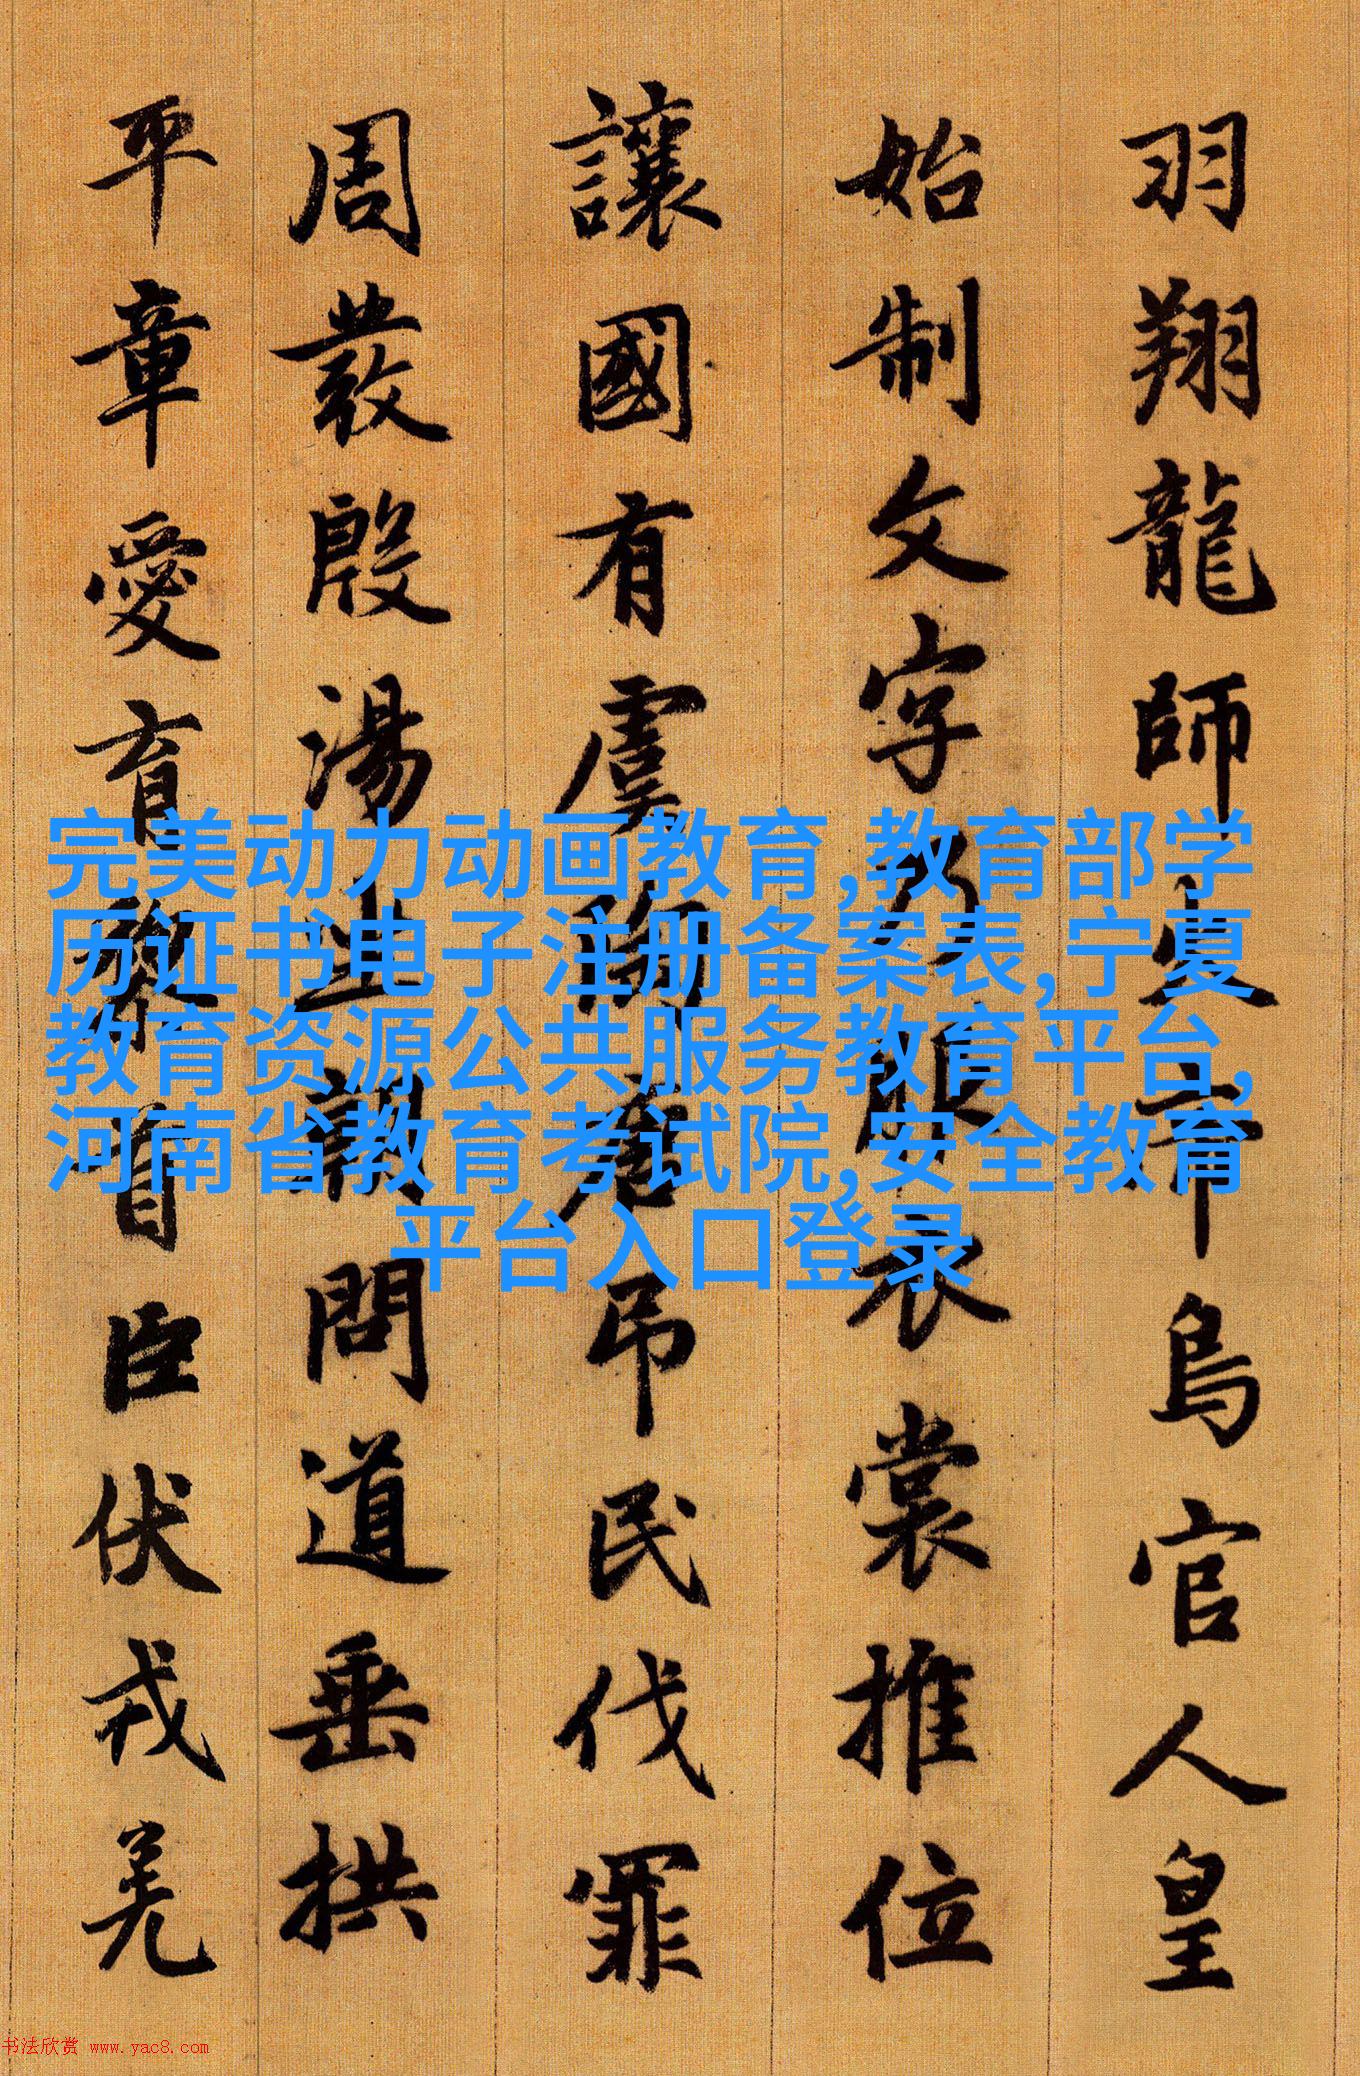 羽翔龍師火帝鳥官人皇
始制文字乃服衣裳推位
讓國有虞陶唐吊民伐罪
周發殷湯坐朝問道垂拱
平章愛育黎首臣伏戎羌
完美动力动画教育,教育部学
历证书电子注册备案表,宁夏
教育资源公共服务教育平台,
河南省教育考试院,安全教育
平台入口登录
书法欣赏 www.yac8.com